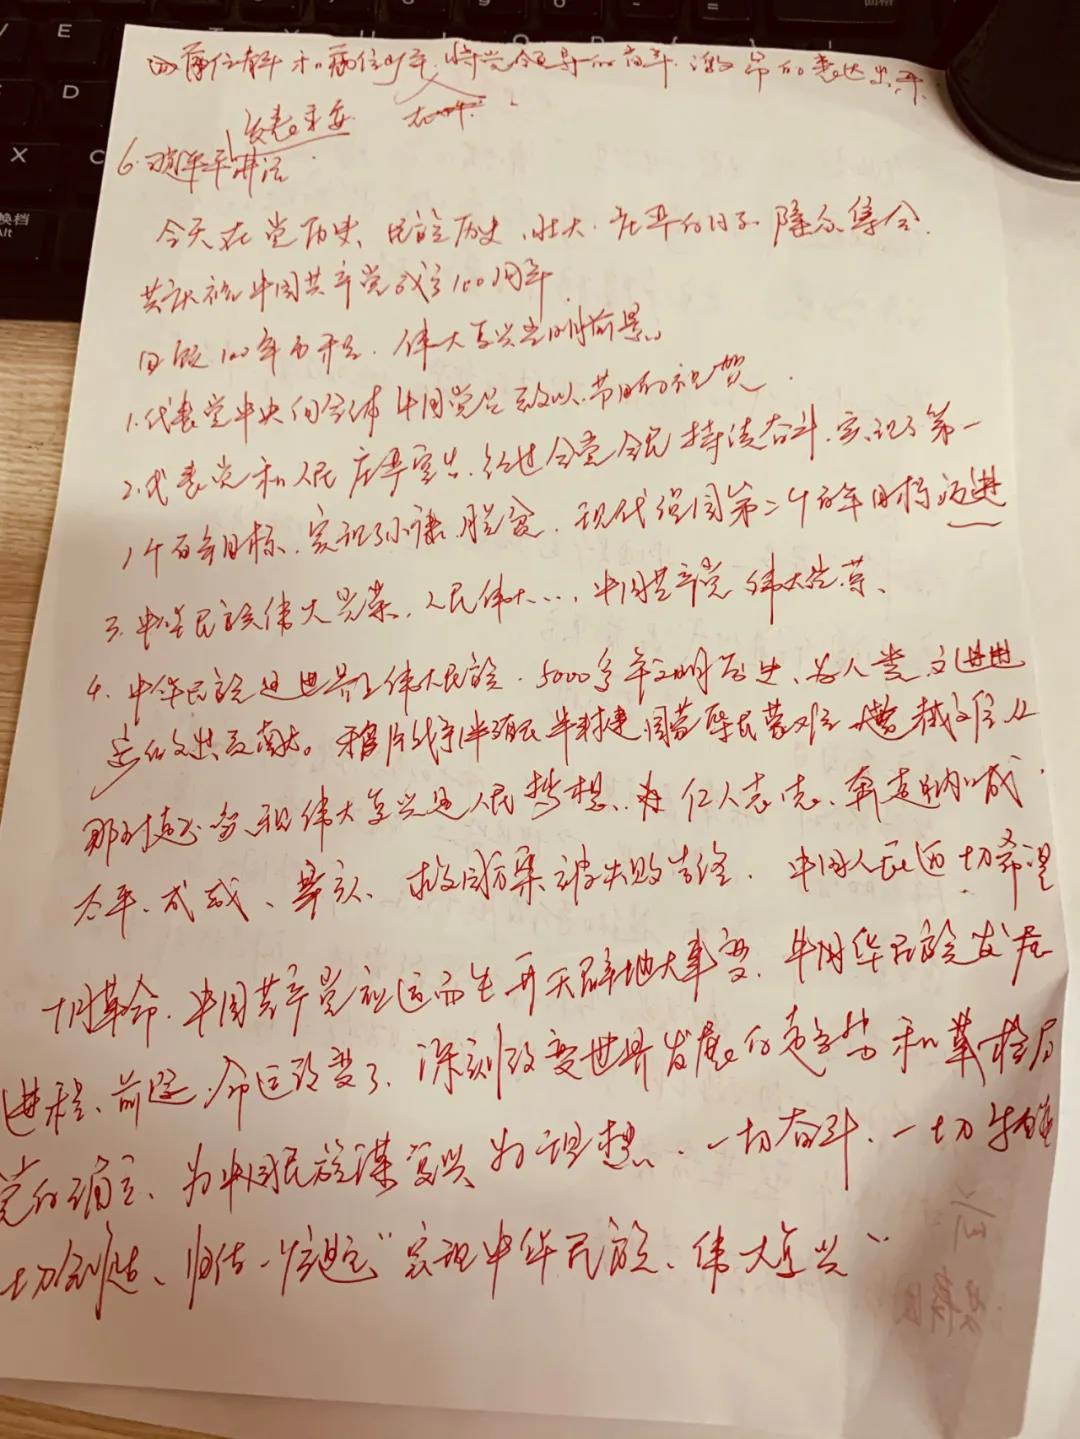 两位青年和两位少年,将党领导的奋斗,激昂的表达出来
发表重要
6.习近平讲话
今天在党历史、民族历史、壮大、庄严的日子隆众集会
共庆祝中国共产党成立100周年
回顾100年的开足,伟大复兴光明前景。
1.代表党中央向全体中国党员致以节日的祝贺.
2.代表党和人民庄严宣告,经过全党全民持续奋斗,实现了第一
1个百年目标,实现了小康、脱贫,现代强国第二个百年目标迈进
3.中华民族伟大光荣,人民伟大...,中国共产党伟大光荣、
4.中华民族是世界上伟大民族.5000多年文明历史、为人类文进进
步作文出贡献。鸦片战争半殖民半封建国蒙辱民蒙难
那时起,实现伟大复兴是人民梦想,为仁人志志、奔走呐喊
太平、戊戌、拳义、救国方案被失败告终.中国人民迫切希望
十月革命.中国共产党应运而生开天辟地大事变.中国华民族发展
进程、前途、命运改变了、深刻改变世界发展的趋势和革格局
党的确立、为中国民族谋复兴为理想、一切奋斗、一切牺牲
切创造、归结一个主题"实现中华民族、伟大复兴"